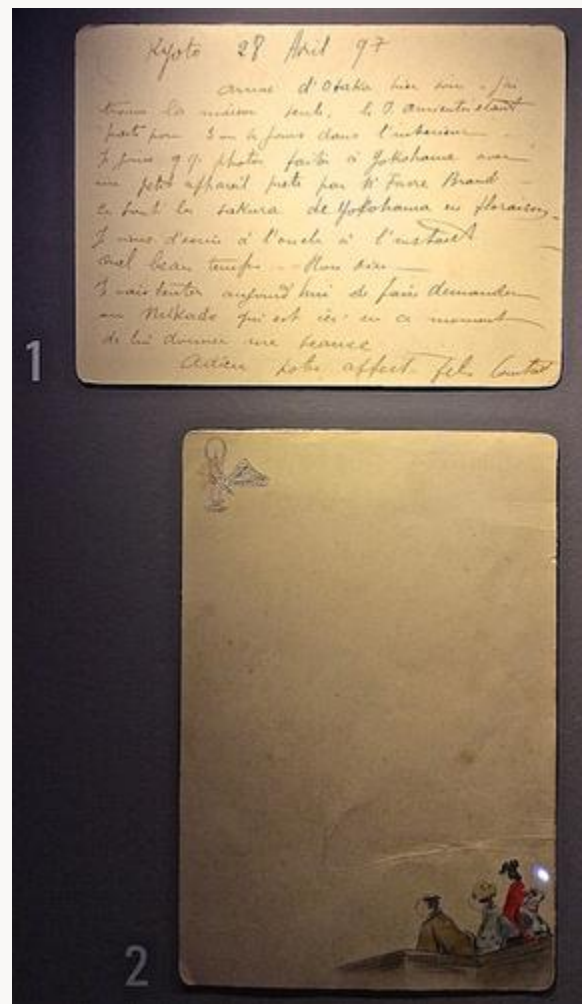 Kyoto 28 Avril 97
arrivé d'Osaka hier soir. j'ai
trouvé la maison seule. le D.
parti pour 3 ou 4 jours dans l'interieur
Je joins qq. photos faites à Yokohama avec
un petit appareil prêté par Mr Favre Brand
ce sont les sakura de Yokohama en floraison
Je viens d'ecrire à l'oncle à l'instant
quel beau temps Mon Dieu
Je vais tenter aujourd'hui de faire demander
au Mikado qui est ici en ce moment
de lui donner une seance
Adieu votre affect. fils
1
2